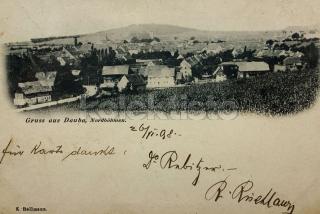 Gruss aus Dauba, Nordböhmen.
26/VI 98.
Für Karte dankt:
Dr. Rabitzer.
R.
K. Hellmann.